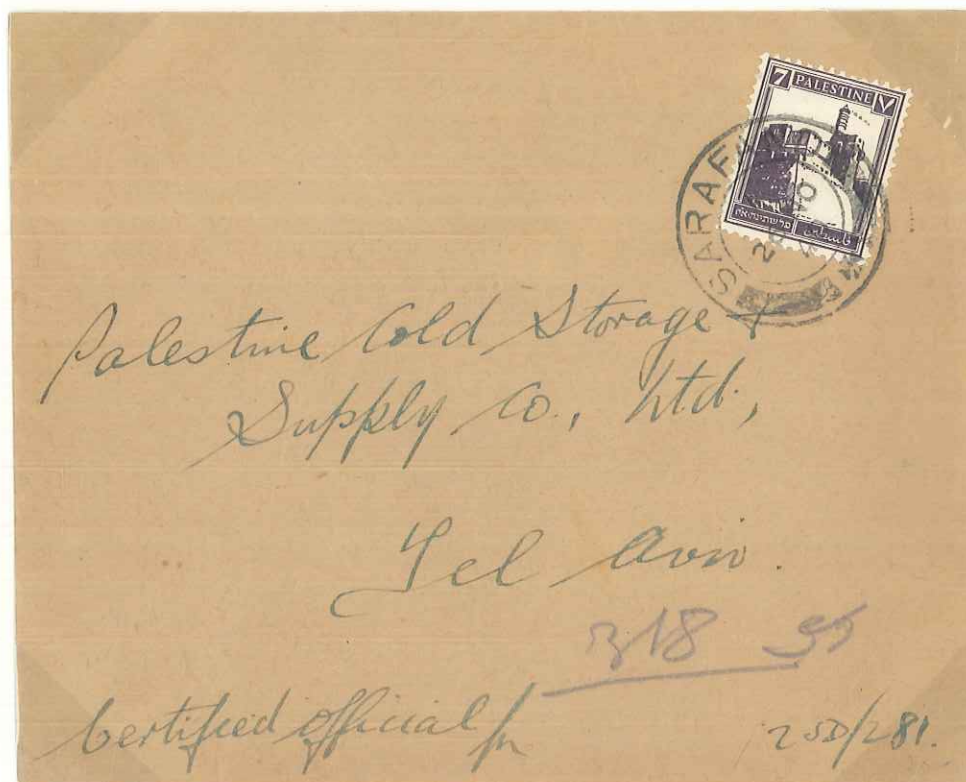 7 PALESTINE ٧
פלשתינה א״י فلسطين
SARAFAND
Palestine Cold Storage +
Supply Co., Ltd.,
Tel Aviv.
Certified official
2SD/281.